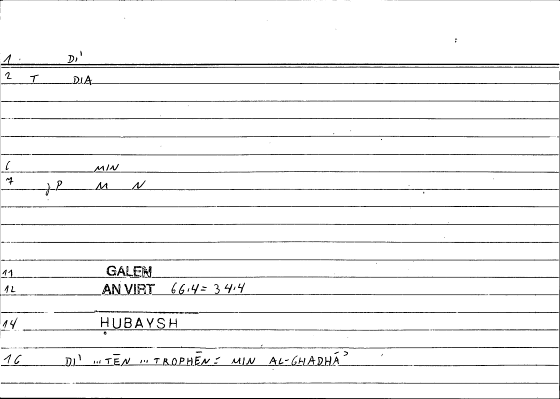 1 DI'
2 T DIA
6 MIN
7 JP M N
11 GALEN
12 AN VIRT 66.4 = 34.4
14 HUBAYSH
16 DI' ... TĒN ... TROPHĒN: MIN AL-GHADHĀ'